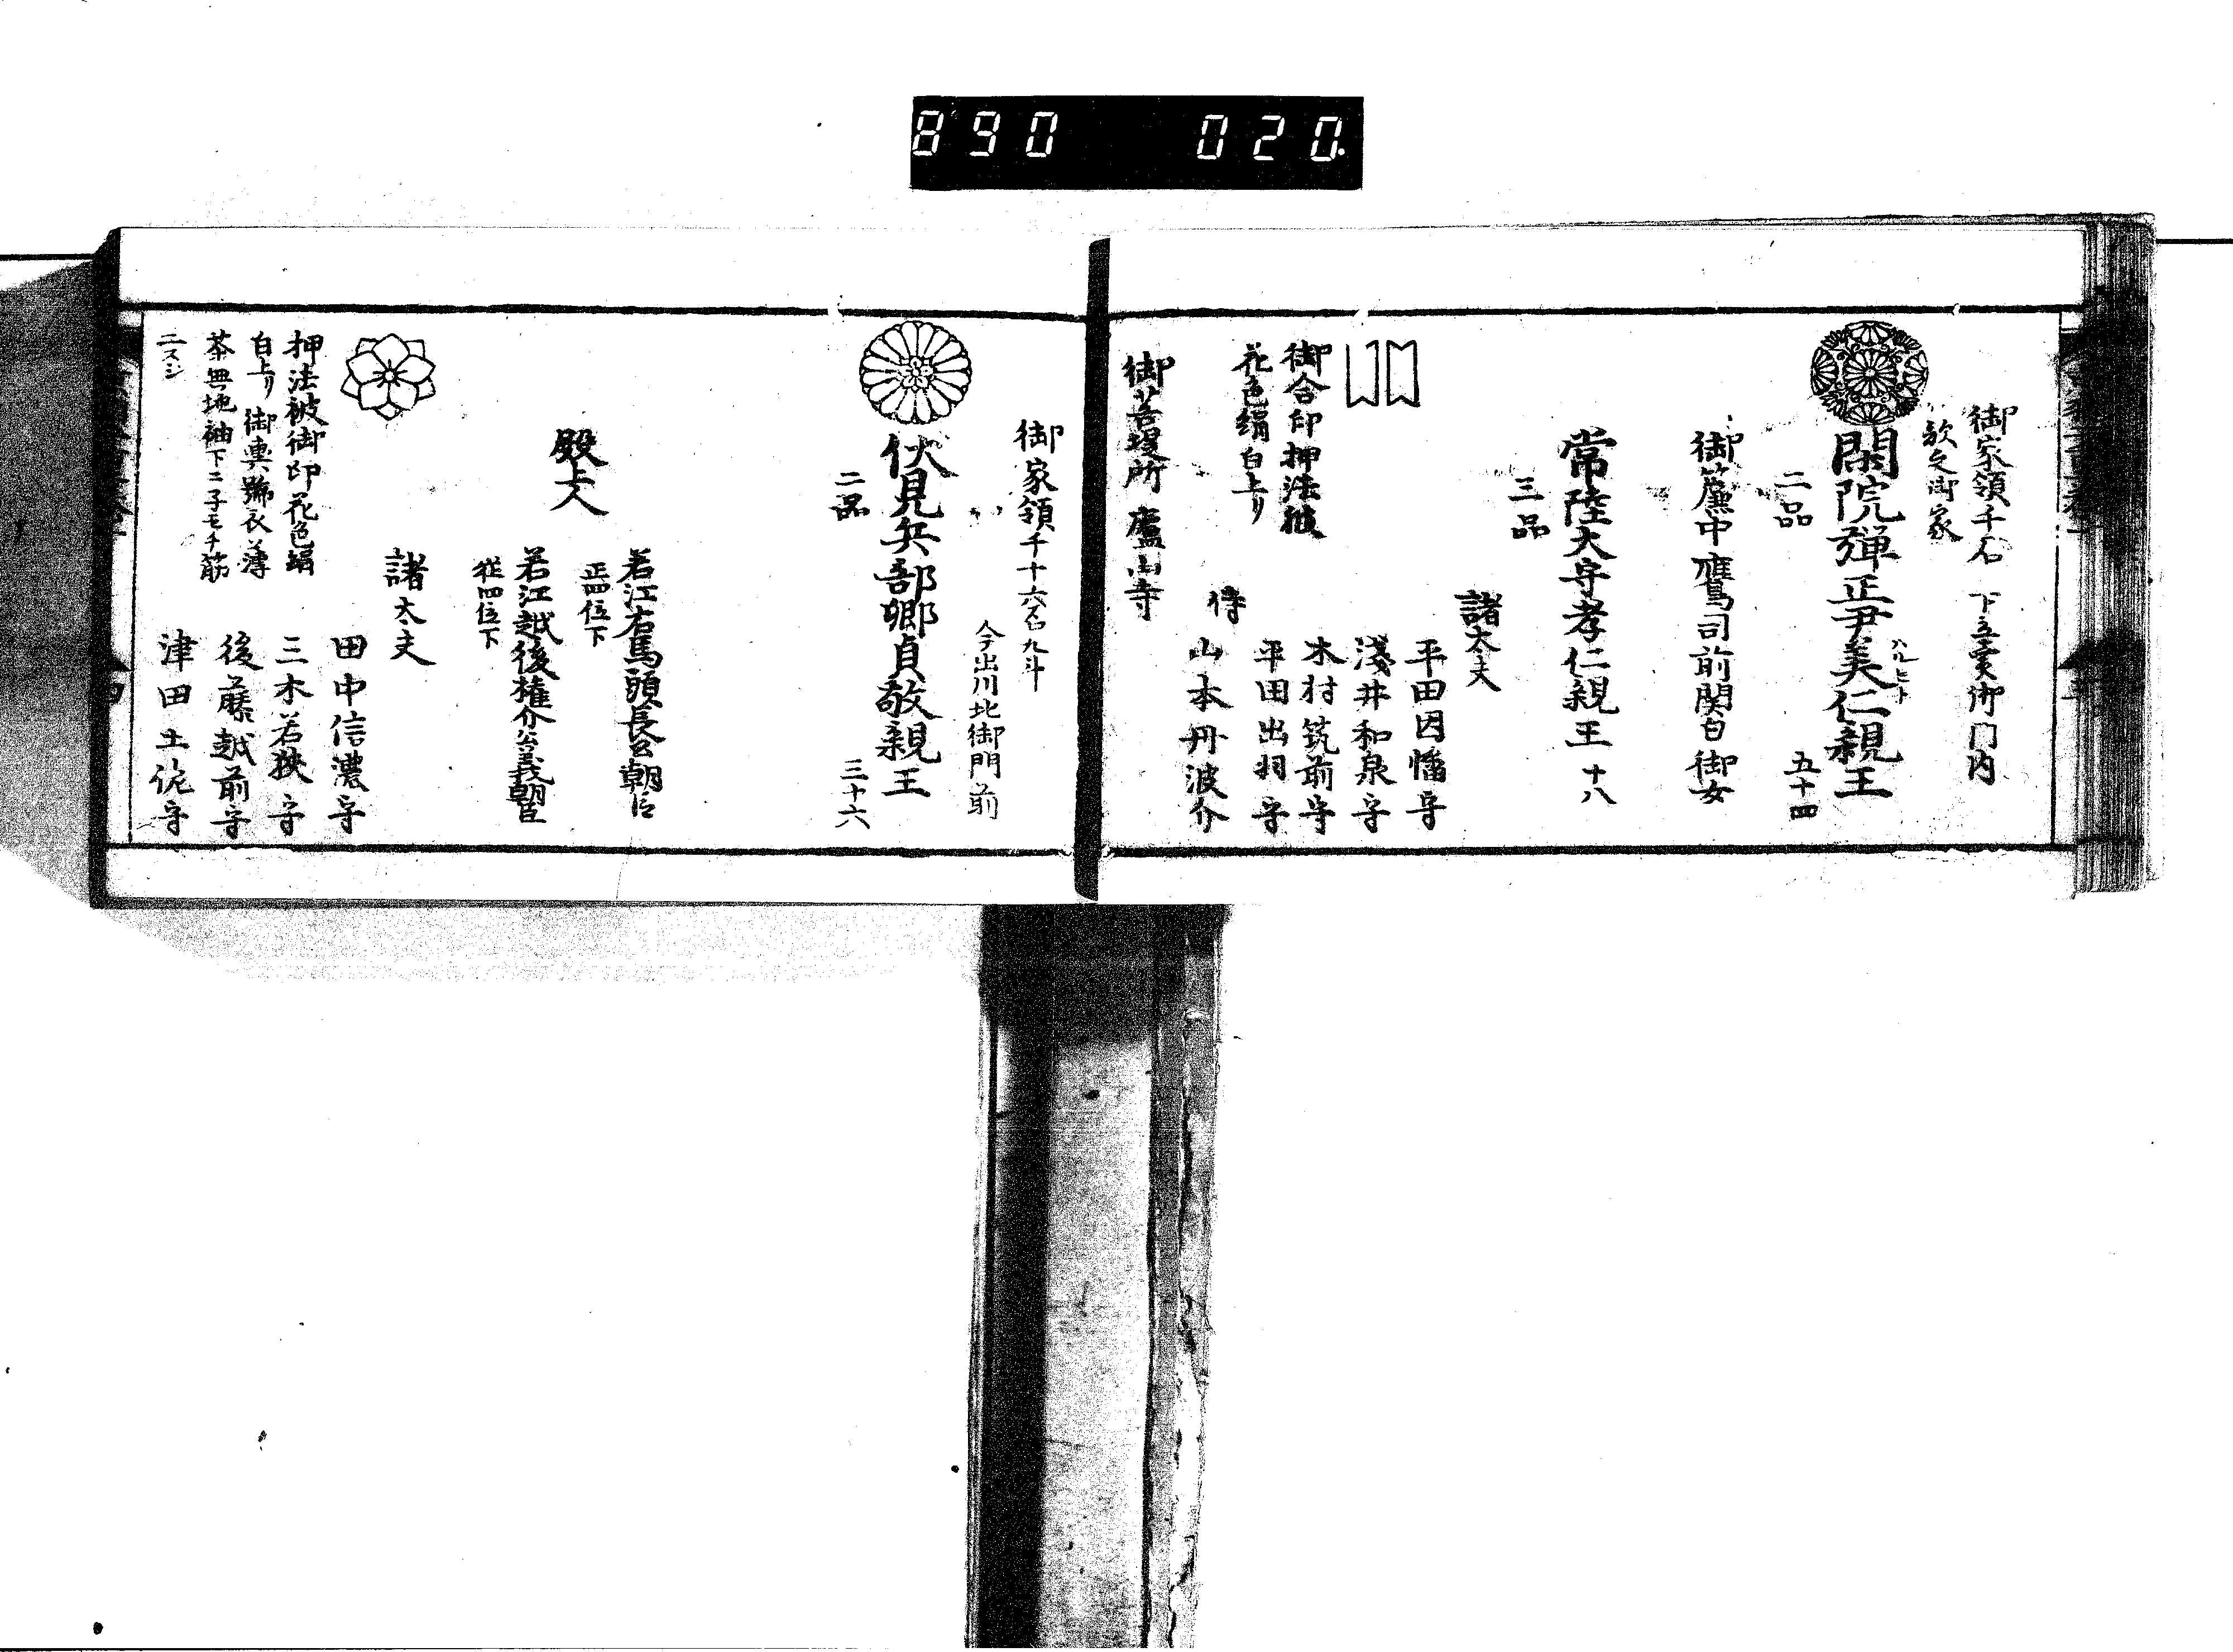 890 020
御家領千石 下立賣御门内
歌之御家
閑院弾正尹美仁親王
二品 五十四
御簾中鷹司前関白御女
常陸大守孝仁親王 十八
三品
諸太夫
平田因幡守
淺井和泉守
木村筑前守
平田出羽守
侍
山本丹波介
御合印押法被
花色絹白上り
御菩提所 廬山寺
御家領千十六石九斗
今出川北御門前
伏見兵部卿貞敬親王
二品 三十六
殿上人
若江右馬頭長公朝臣
正四位下
若江越後権介公義朝臣
従四位下
諸太夫
田中信濃守
三木若狭守
後藤越前守
津田土佐守
押法被御印花色絹
白上り 御輿舁衣薄
茶無地袖下ニ子モチ筋
二スジ